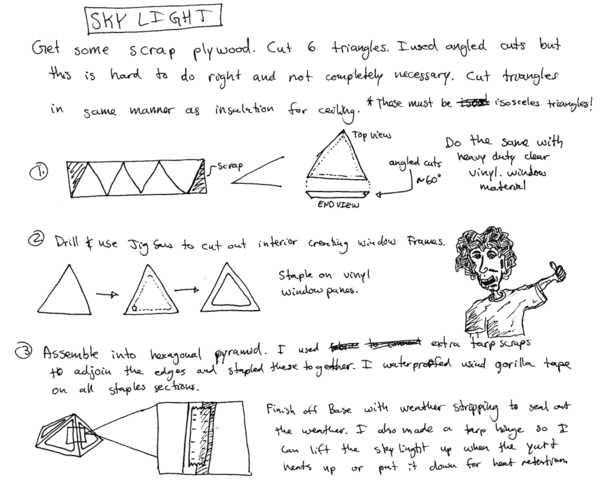 SKY LIGHT
Get some scrap plywood. Cut 6 triangles. I used angled cuts but
this is hard to do right and not completely necessary. Cut triangles
in same manner as insulation for ceiling. * These must be isosceles triangles!
1.
scrap
Top view
angled cuts
~60°
END VIEW
Do the same with
heavy duty clear
vinyl. window
material
2 Drill & use Jig Saw to cut out interior creating window frames.
Staple on vinyl
window panes.
3 Assemble into hexagonal pyramid. I used extra tarp scraps
to adjoin the edges and stapled these together. I waterproofed using gorilla tape
on all staples sections.
Finish off Base with weather stripping to seal out
the weather. I also made a tarp hinge so I
can lift the sky light up when the yurt
heats up or put it down for heat retention.